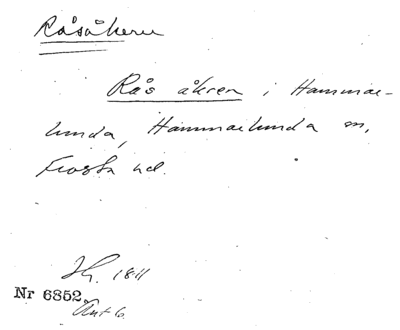 Råsåkern
Rås åkren i Hammar-
lunda, Hammarlunda sn,
Frosta hd.
1811
Nr 6852.